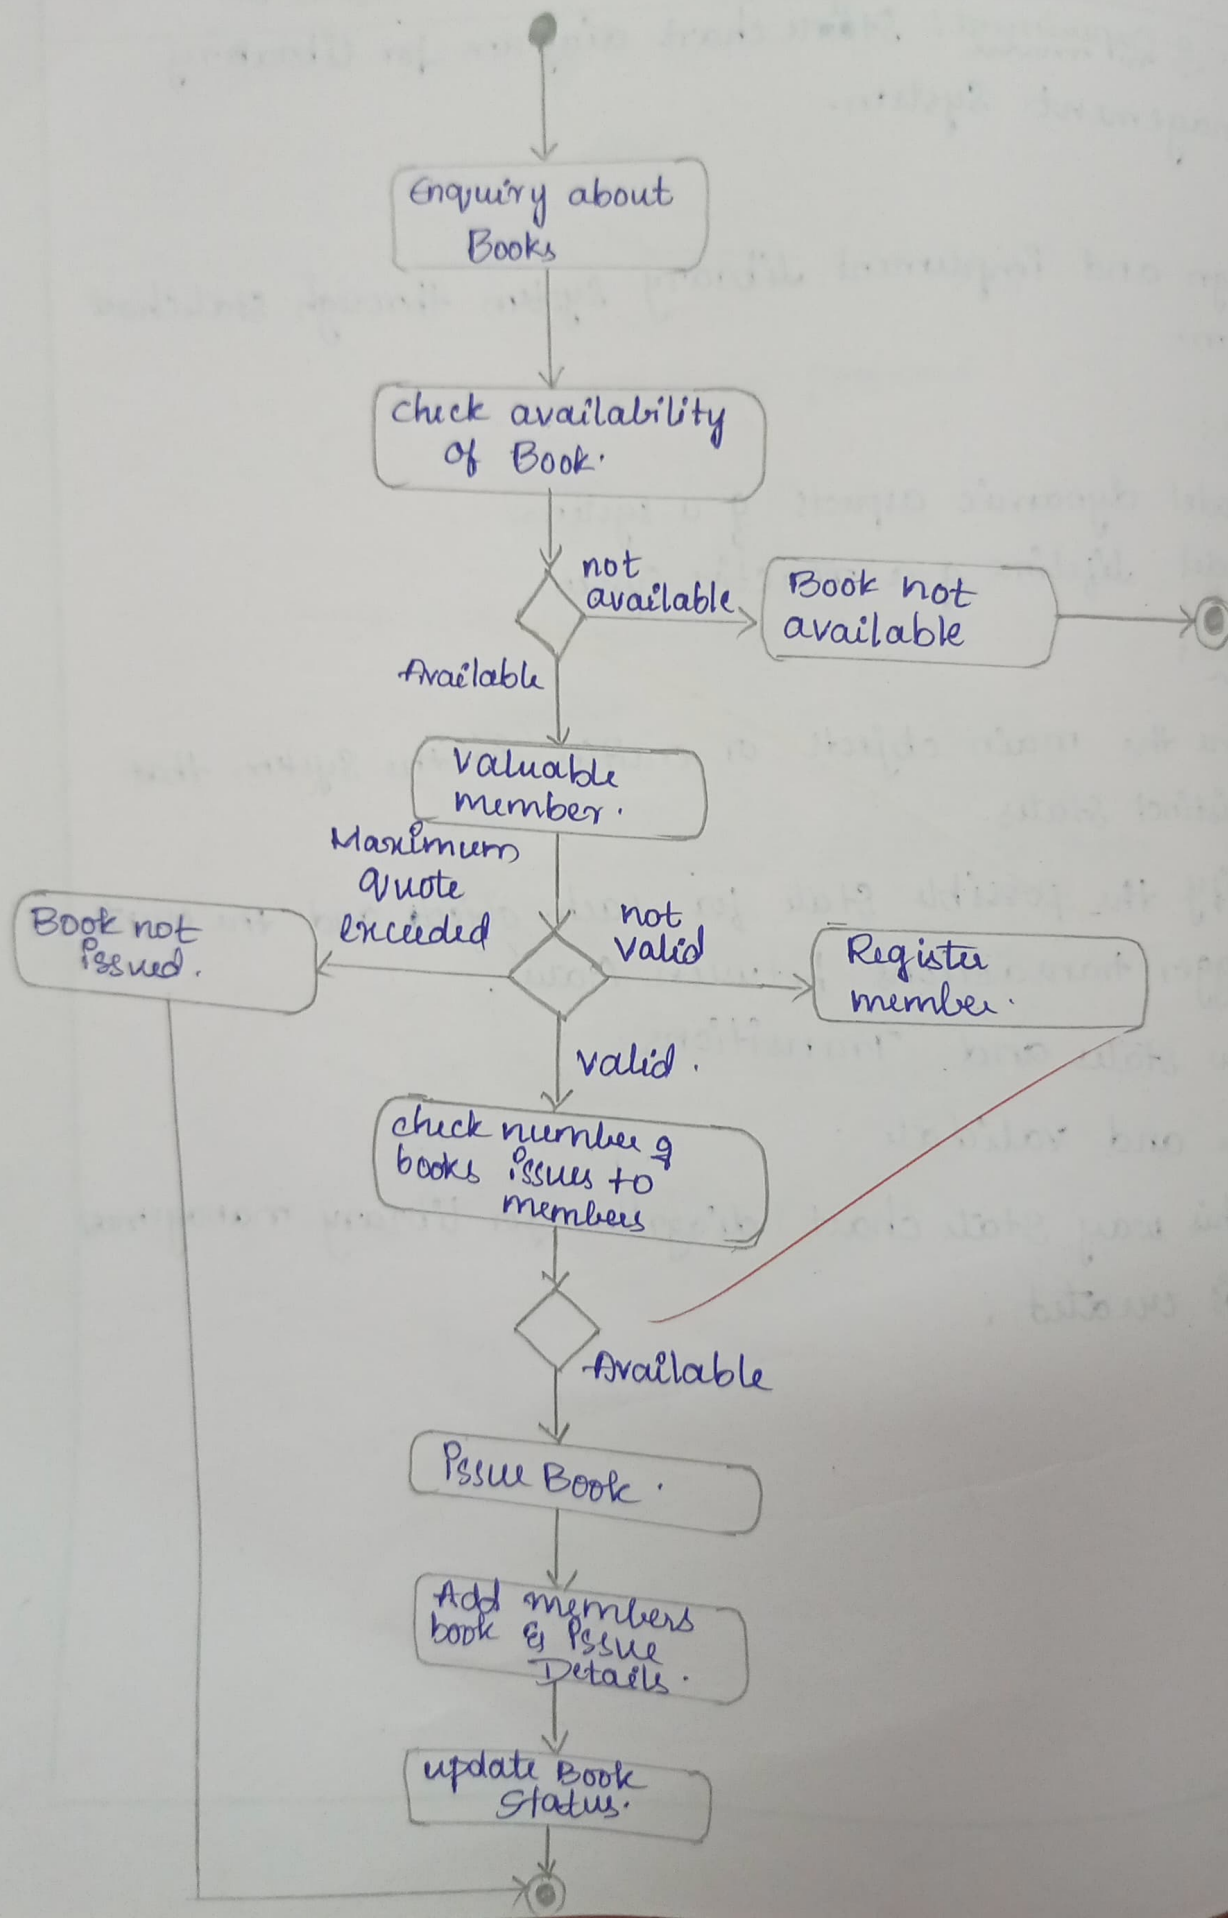 Enquiry about
Books
check availability
of Book.
not
available
Book not
available
Available
Valuable
member.
Maximum
quote
exceeded
Book not
issued.
not
valid
Register
member.
valid.
check number of
books issues to
members
Available
Issue Book.
Add members
book & Issue
Details.
update Book
Status.